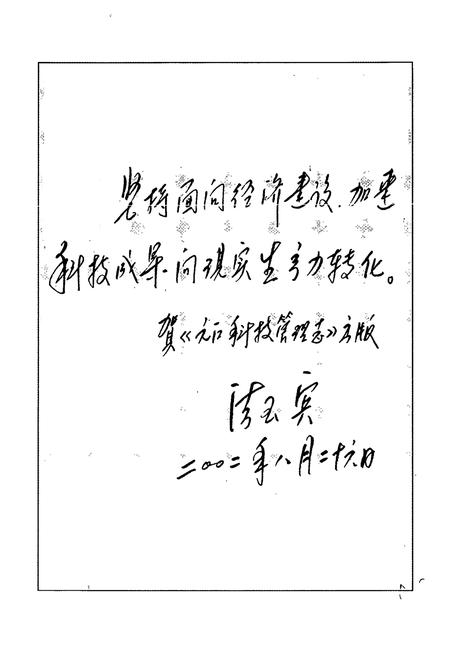 坚持面向经济建设,加速
科技成果向现实生产力转化。
贺《科技管理志》出版
玉宾
二〇〇二年八月二十六日